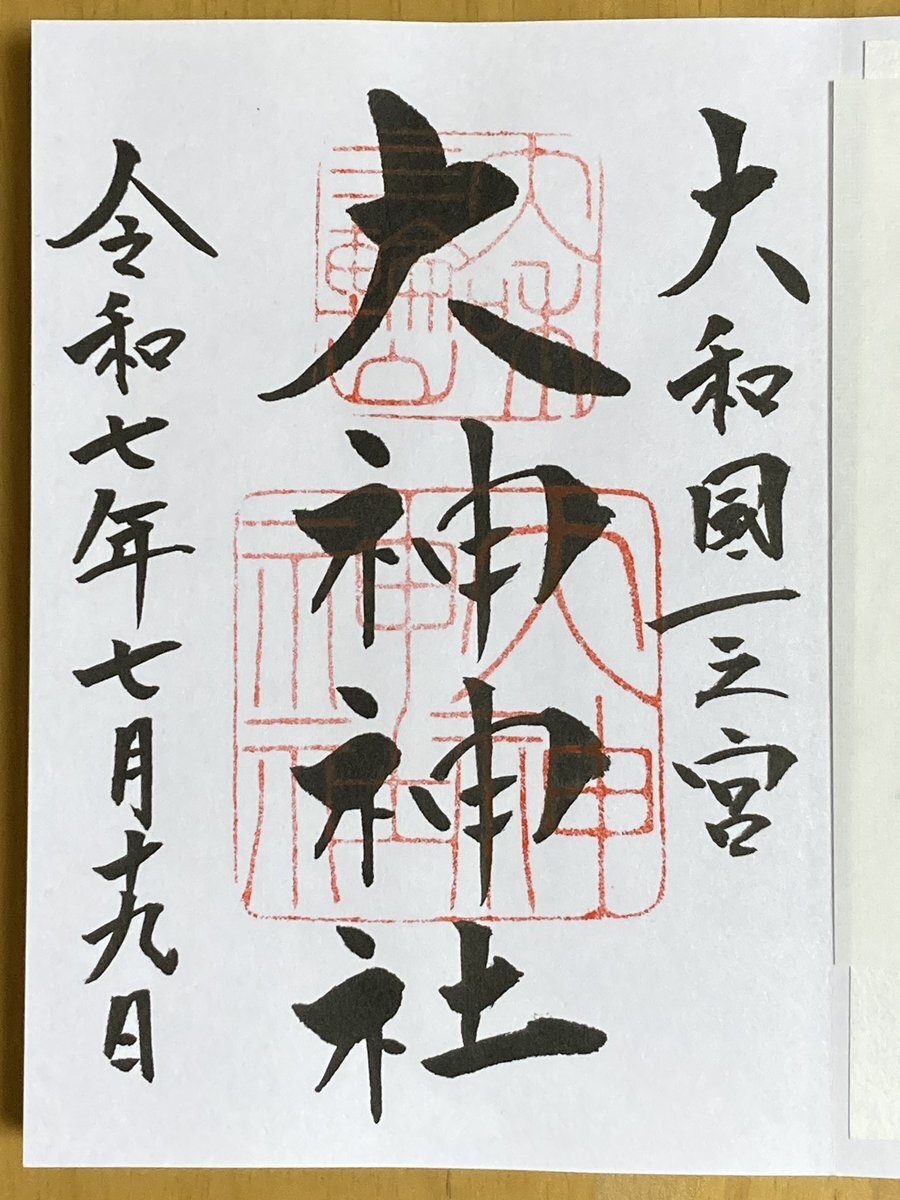 大和國一之宮
大神神社
大神
神社
令和七年七月十九日